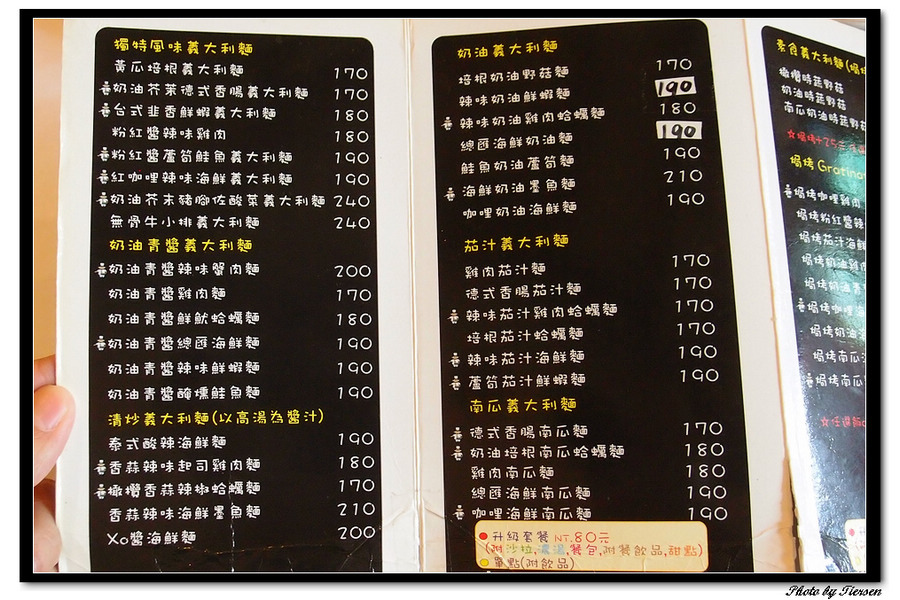 獨特風味義大利麵
黃瓜培根義大利麵 170
奶油芥茉德式香腸義大利麵 170
台式韭香鮮蝦義大利麵 180
粉紅醬辣味雞肉 180
粉紅醬蘆筍鮭魚義大利麵 190
紅咖哩辣味海鮮義大利麵 190
奶油芥末豬腳佐酸菜義大利麵 240
無骨牛小排義大利麵 240
奶油青醬義大利麵
奶油青醬辣味蟹肉麵 200
奶油青醬雞肉麵 170
奶油青醬鮮魷蛤蠣麵 180
奶油青醬總匯海鮮麵 190
奶油青醬辣味鮮蝦麵 190
奶油青醬醃燻鮭魚麵 190
清炒義大利麵(以高湯為醬汁)
泰式酸辣海鮮麵 190
香蒜辣味起司雞肉麵 180
橄欖香蒜辣椒蛤蠣麵 170
香蒜辣味海鮮墨魚麵 210
XO醬海鮮麵 200
奶油義大利麵
培根奶油野菇麵 170
辣味奶油鮮蝦麵 190
辣味奶油雞肉蛤蠣麵 180
總匯海鮮奶油麵 190
鮭魚奶油蘆筍麵 190
海鮮奶油墨魚麵 210
咖哩奶油海鮮麵 190
茄汁義大利麵
雞肉茄汁麵 170
德式香腸茄汁麵 170
辣味茄汁雞肉蛤蠣麵 170
培根茄汁蛤蠣麵 170
辣味茄汁海鮮麵 190
蘆筍茄汁鮮蝦麵 190
南瓜義大利麵
德式香腸南瓜麵 170
奶油培根南瓜蛤蠣麵 180
雞肉南瓜麵 180
總匯海鮮南瓜麵 190
咖哩海鮮南瓜麵 190
升級套餐NT.80元
(附沙拉,濃湯,餐包,附餐飲品,甜點)
單點(附飲品)
素食義大利麵(焗烤
橄欖時蔬野菇
奶油時蔬野菇
南瓜奶油時蔬野菇
☆焗烤+25元
焗烤 Gratino
焗烤咖哩雞肉
焗烤粉紅醬辣
焗烤茄汁海鮮
焗烤奶油雞肉
焗烤奶油青
焗烤咖哩海
焗烤奶油
焗烤南瓜
焗烤南瓜
☆任選
Photo by Tiersen